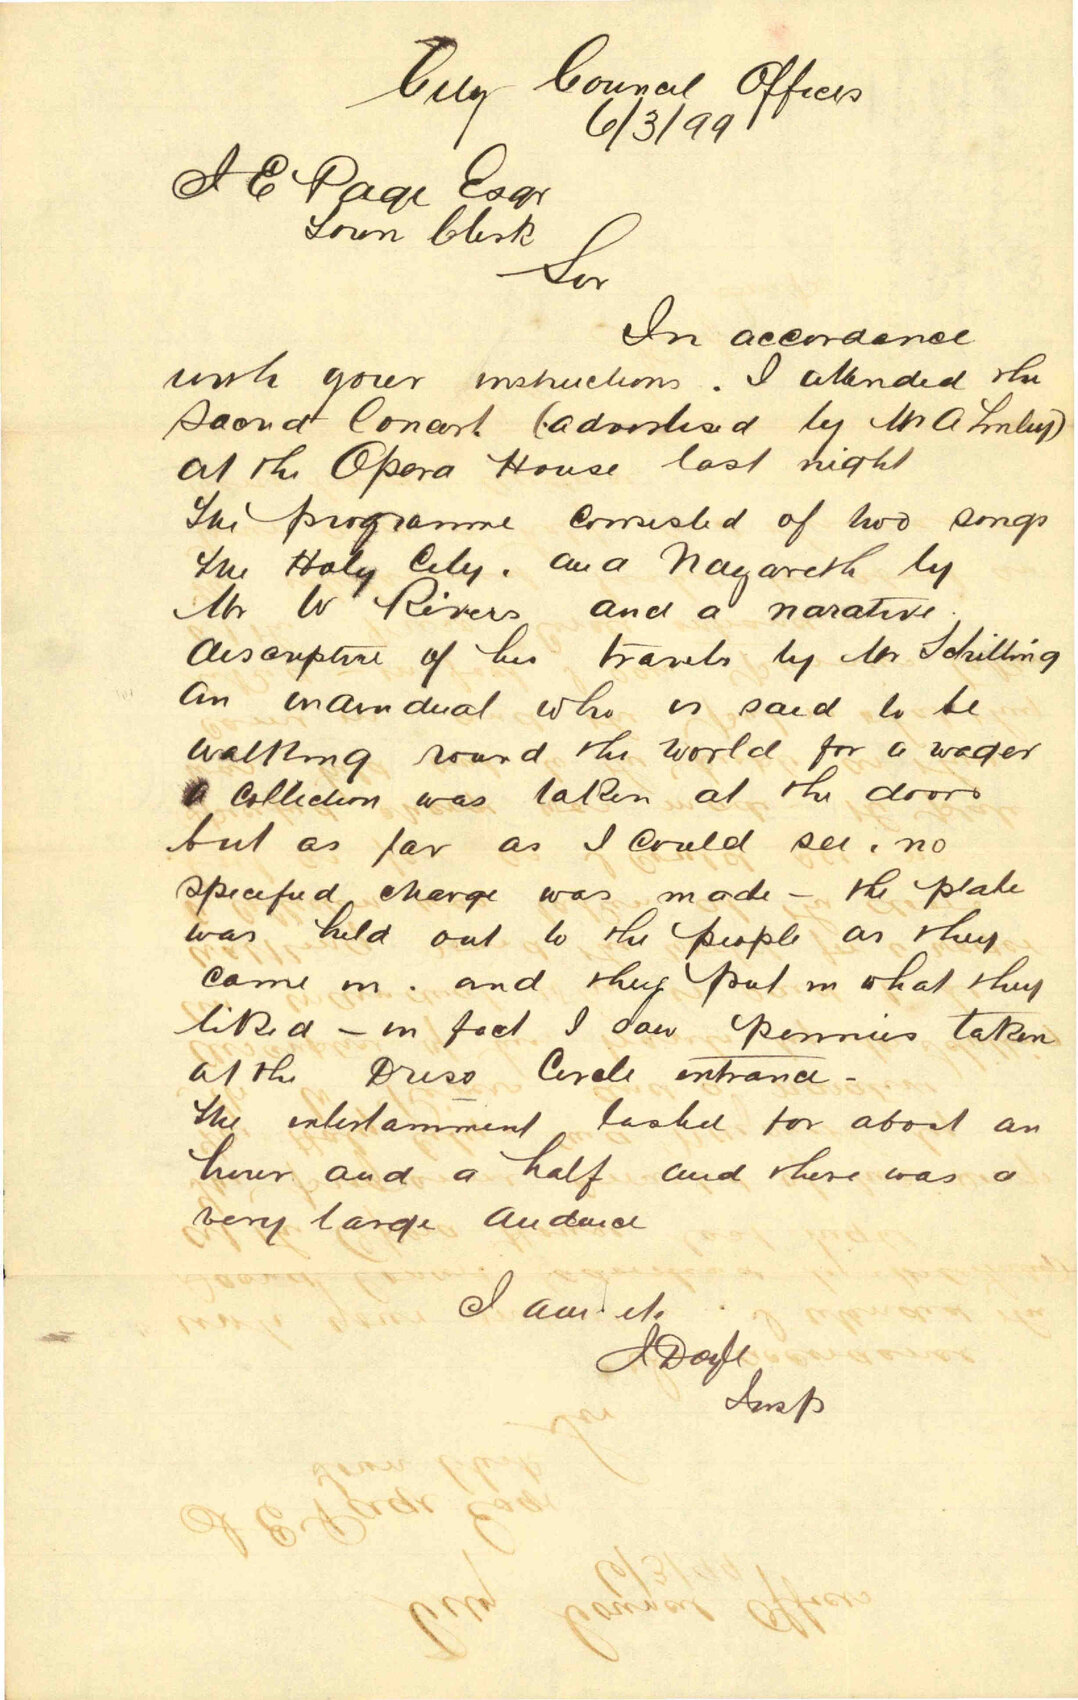 City Council Offices
6/3/99
J E Page Esqr
Town Clerk
Sir
In accordance
with your instructions. I attended the
Sacred Concert (advertised by Mr A Linley)
at the Opera House last night
The programme consisted of two songs
The Holy City. and Nazareth by
Mr W Rivers and a narative
descriptive of his travels by Mr Schilling
an individual who is said to be
walking round the world for a wager
a collection was taken at the doors
but as far as I could see. no
specified charge was made - the plate
was held out to the people as they
came in. and they put in what they
liked - in fact I saw pennies taken
at the Dress Circle entrance -
The entertainment lasted for about an
hour and a half and there was a
very large audience
I am etc
J Doyle
Insp